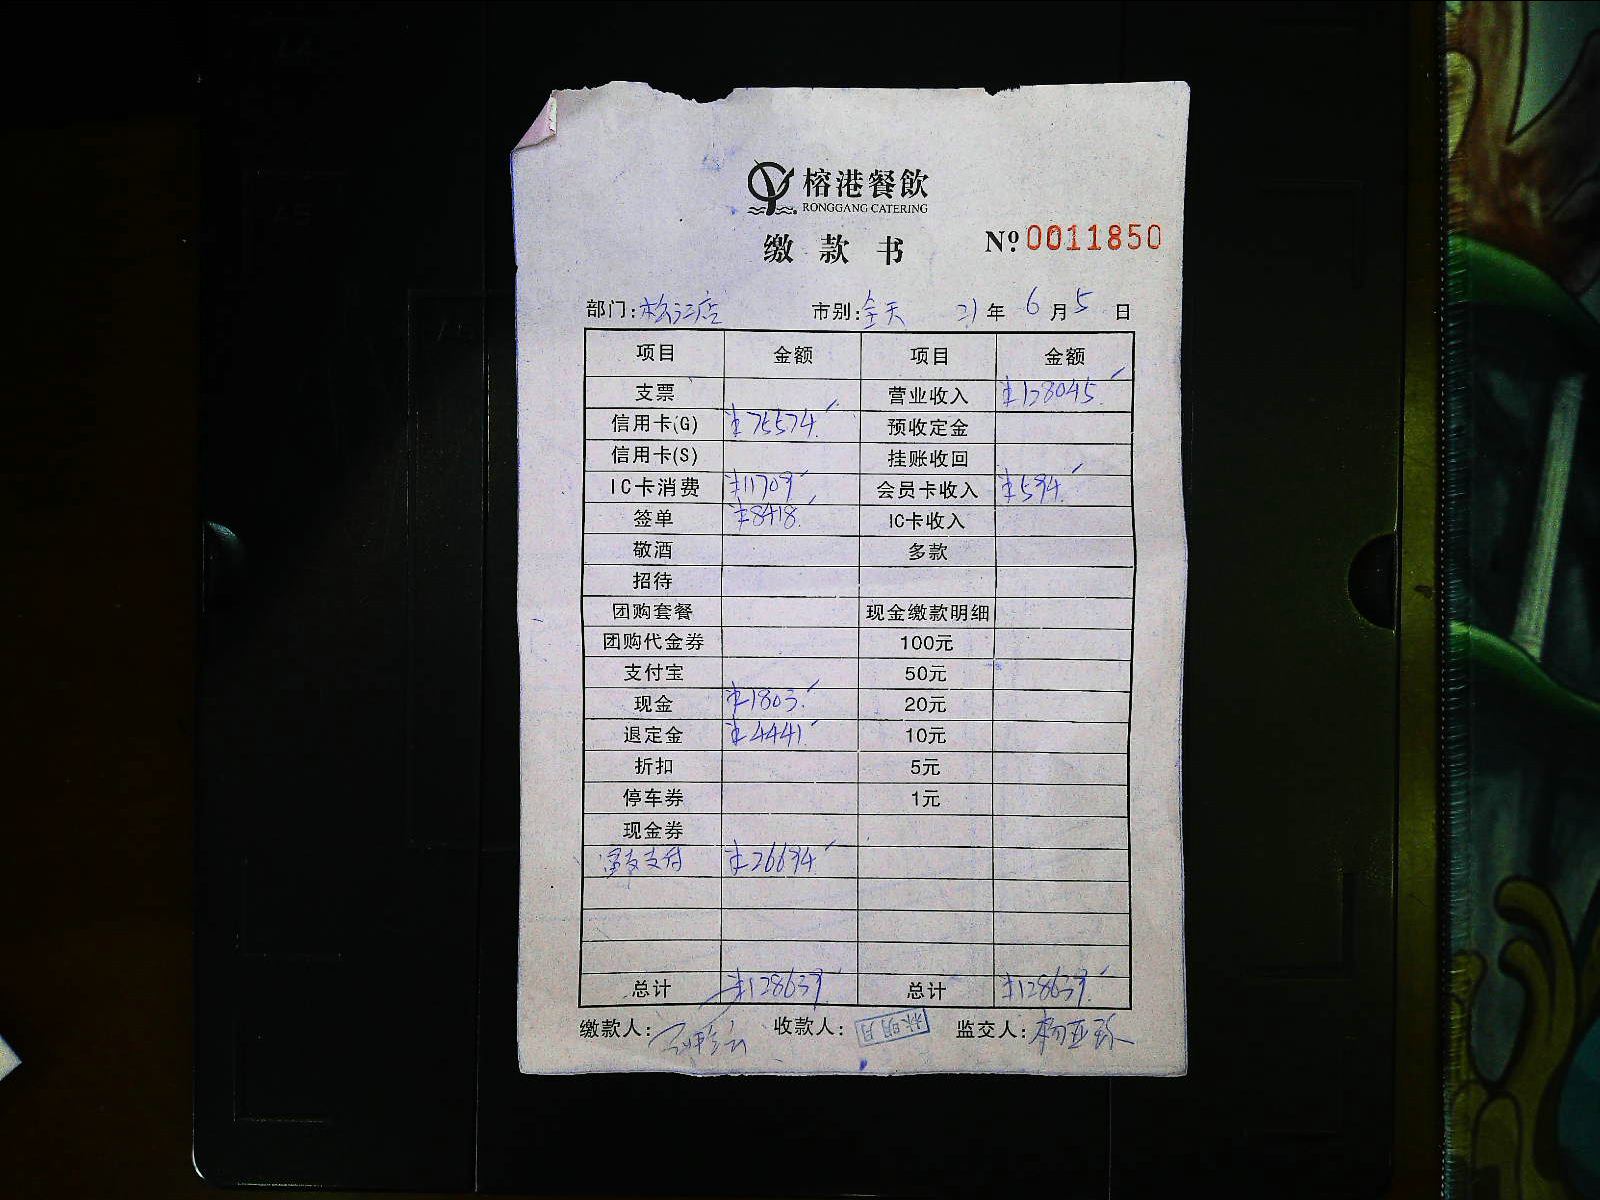 榕港餐飲
RONGGANG CATERING
缴款书 Nº 0011850
部门: 松江店 市别: 全天 21年 6月 5日
项目 金额 项目 金额
支票 营业收入 ¥128045.
信用卡(G) ¥75574. 预收定金
信用卡(S) 挂账收回
IC卡消费 ¥11709 会员卡收入 ¥594.
签单 ¥8418. IC卡收入
敬酒 多款
招待
团购套餐 现金缴款明细
团购代金券 100元
支付宝 50元
现金 ¥1803. 20元
退定金 ¥4441. 10元
折扣 5元
停车券 1元
现金券
富友支付 ¥26694.
总计 ¥128639. 总计 ¥128639.
缴款人: 收款人: 林明月 监交人: 杨亚珍